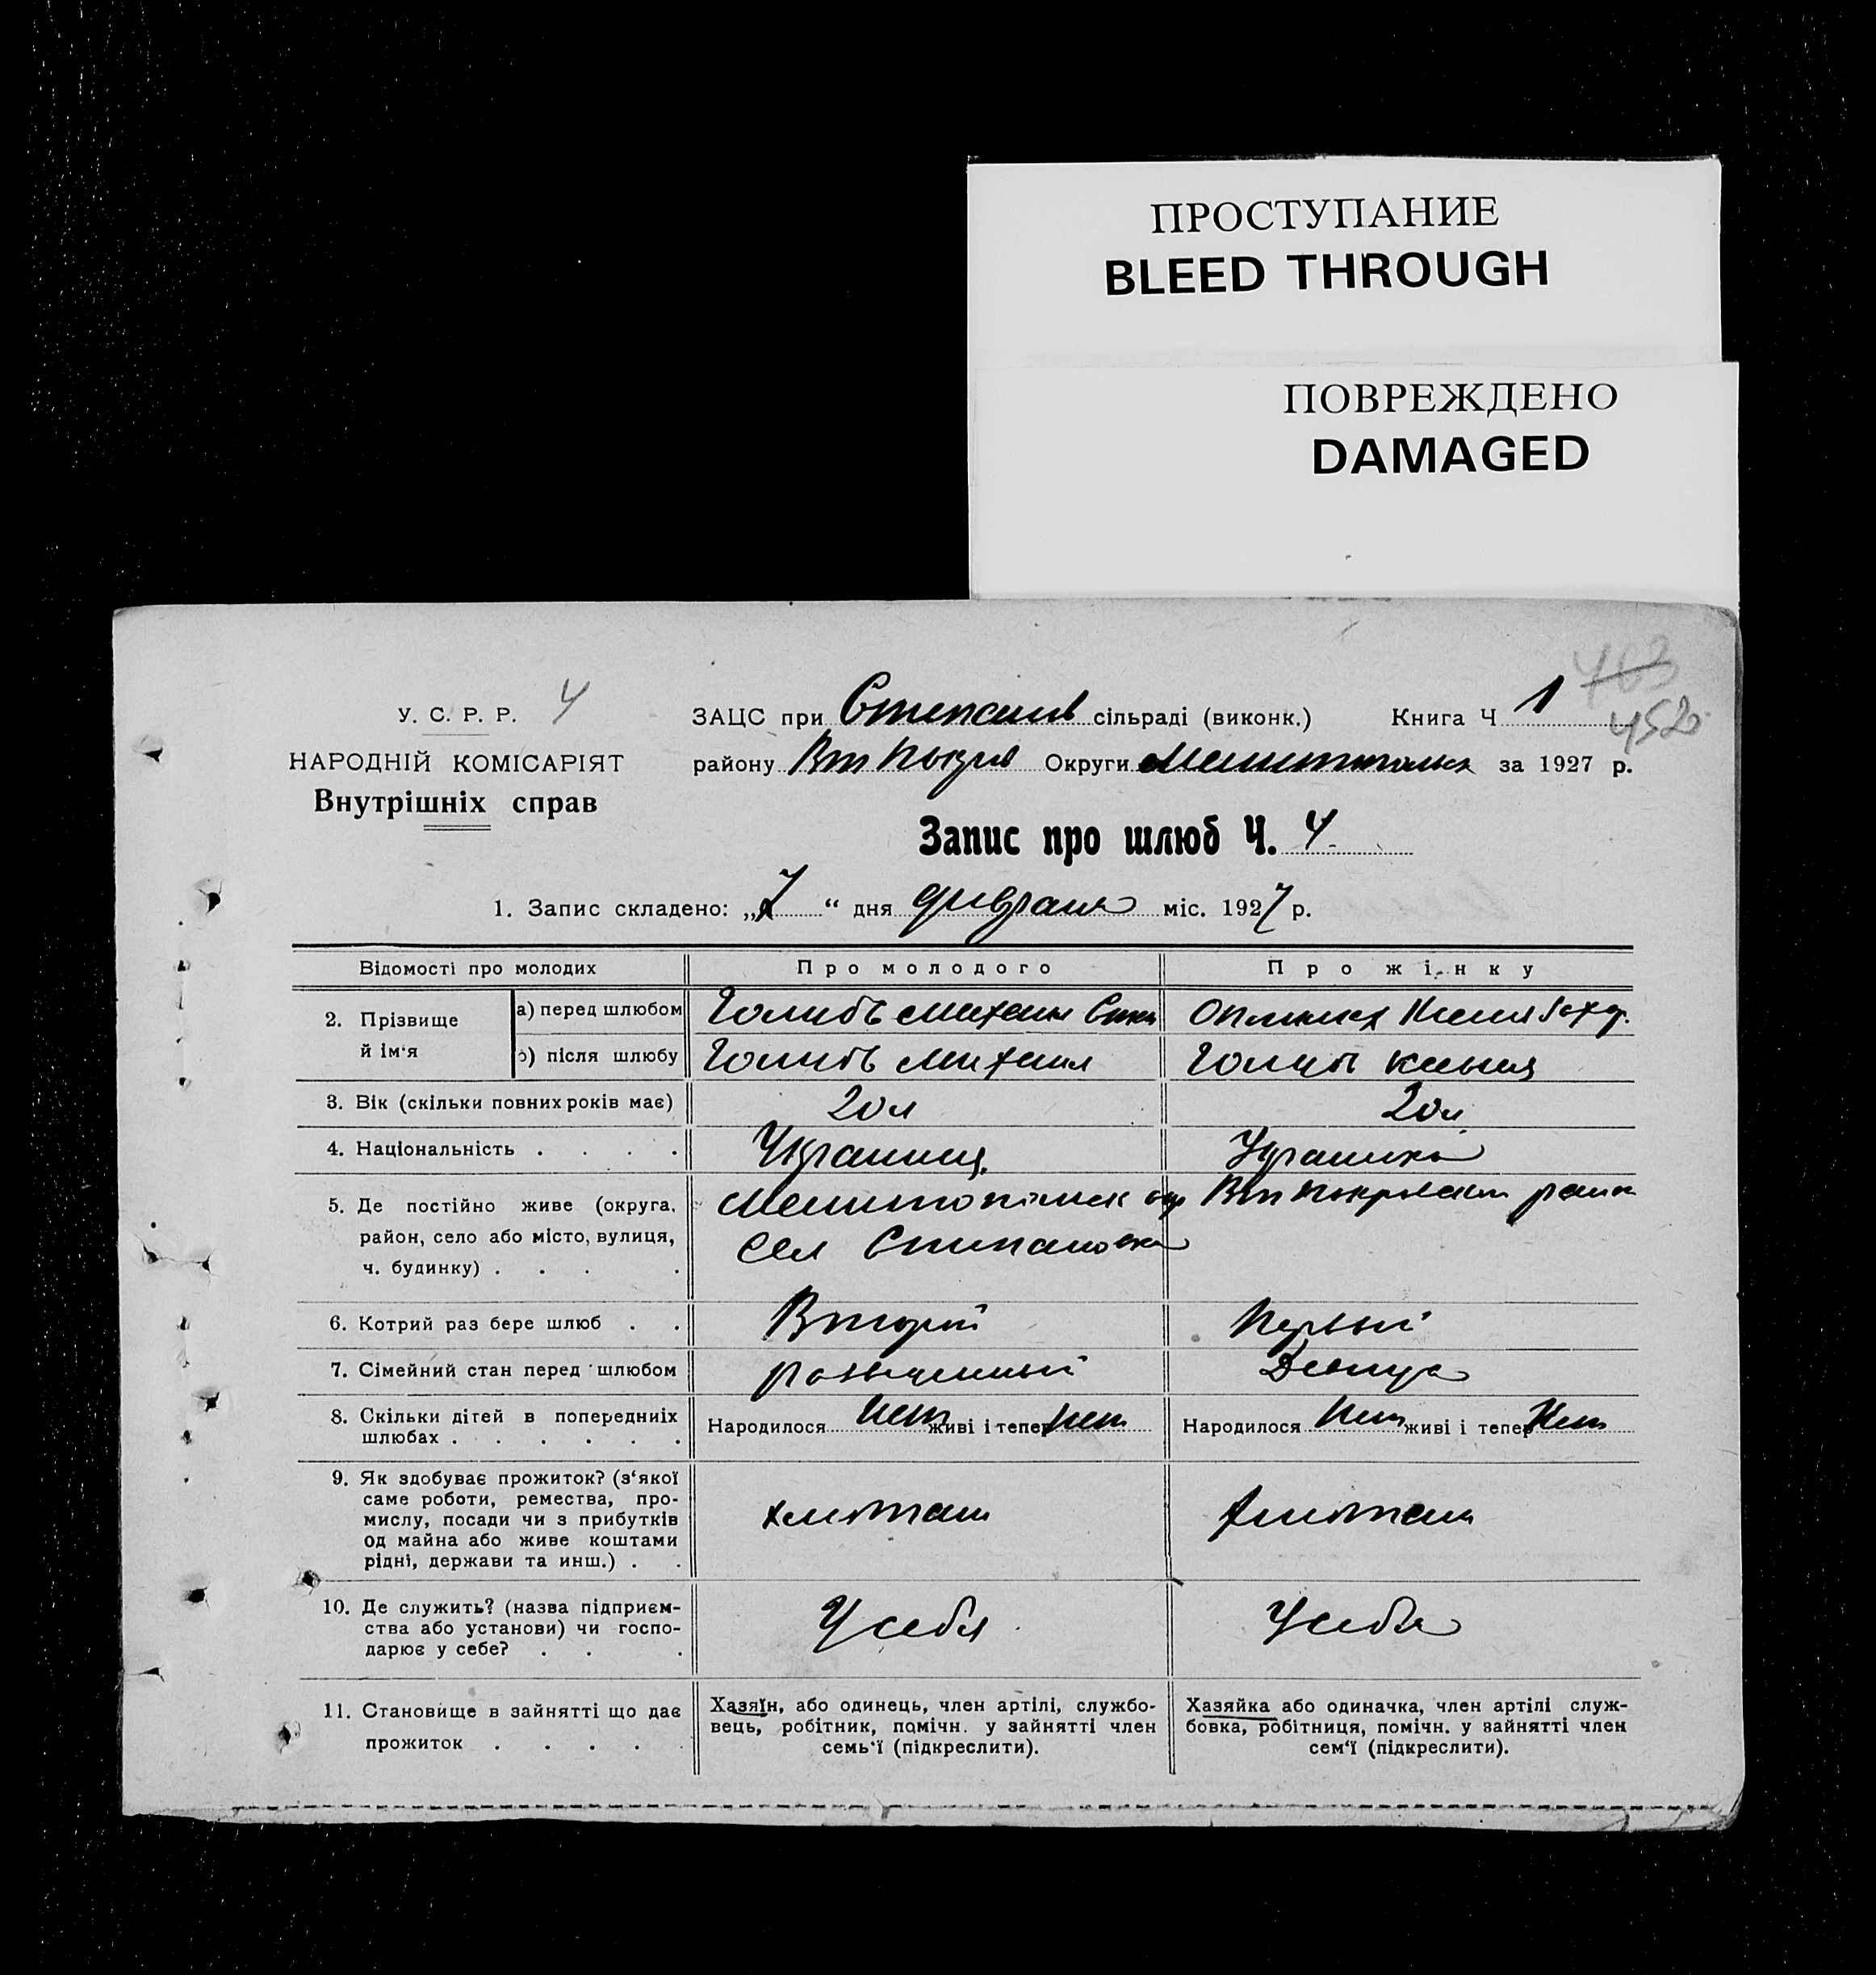 ПРОСТУПАНИЕ
BLEED THROUGH
ПОВРЕЖДЕНО
DAMAGED
463
4520
У. С. Р. Р. 4
НАРОДНІЙ КОМІСАРІЯТ
Внутрішніх справ
ЗАЦС при Степанов сільраді (виконк.) Книга Ч 1
району Вт Покров Округи Мелитопольск за 1927 р.
Запис про шлюб Ч. 4
1. Запис складено: „7“ дня февраля міс. 1927 р.
Відомості про молодих Про молодого Про жінку
2. Прізвище й ім‘я
а) перед шлюбом Голубъ Михаил
б) після шлюбу Голубъ Михаил Голубь Ксения
3. Вік (скільки повних років має) 20 л 20 л
4. Національність . . . . Украинец Украинка
5. Де постійно живе (округа, район, село або місто, вулиця, ч. будинку) . . . .
Мелитопольск окр Вт Покровском район
сел Степановка
6. Котрий раз бере шлюб . . Второй Первый
7. Сімейний стан перед шлюбом Девица
8. Скільки дітей в попередниіх шлюбах . . . . . .
Народилося нет живі і тепер нет Народилося Нет живі і тепер Нет
9. Як здобуває прожиток? (з‘якої
саме роботи, ремества, про-
мислу, посади чи з прибутків
од майна або живе коштами
рідні, держави та инш.) . .
10. Де служить? (назва підприєм-
ства або установи) чи госпо-
дарює у себе? . . .
У себя У себя
11. Становище в зайнятті що дає
прожиток . . . . .
Хазяїн, або одинець, член артілі, службо-
вець, робітник, помічн. у зайнятті член
семь‘ї (підкреслити).
Хазяйка або одиначка, член артілі служ-
бовка, робітниця, помічн. у зайнятті член
сем‘ї (підкреслити).